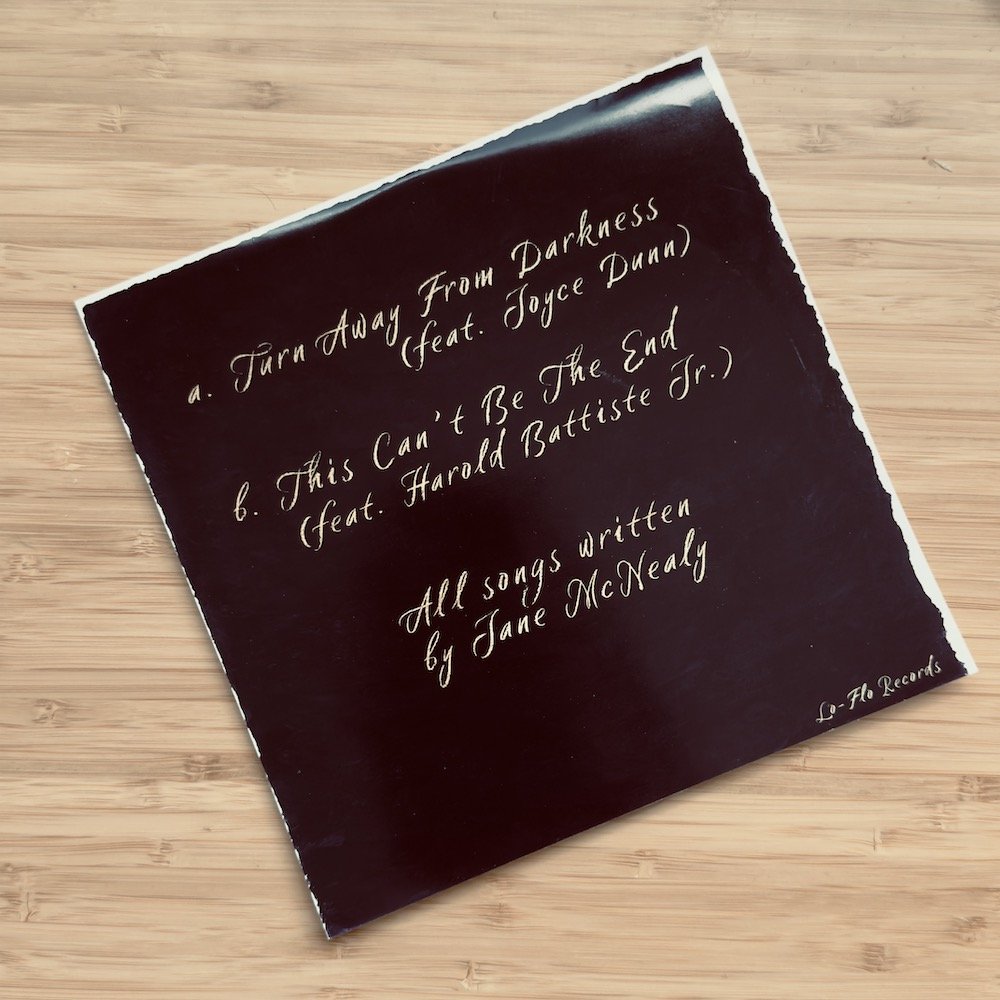 a. Turn Away From Darkness
(feat. Joyce Dunn)
b. This Can't Be The End
(feat. Harold Battiste Jr.)
All songs written
by Jane McNealy
Lo-Flo Records